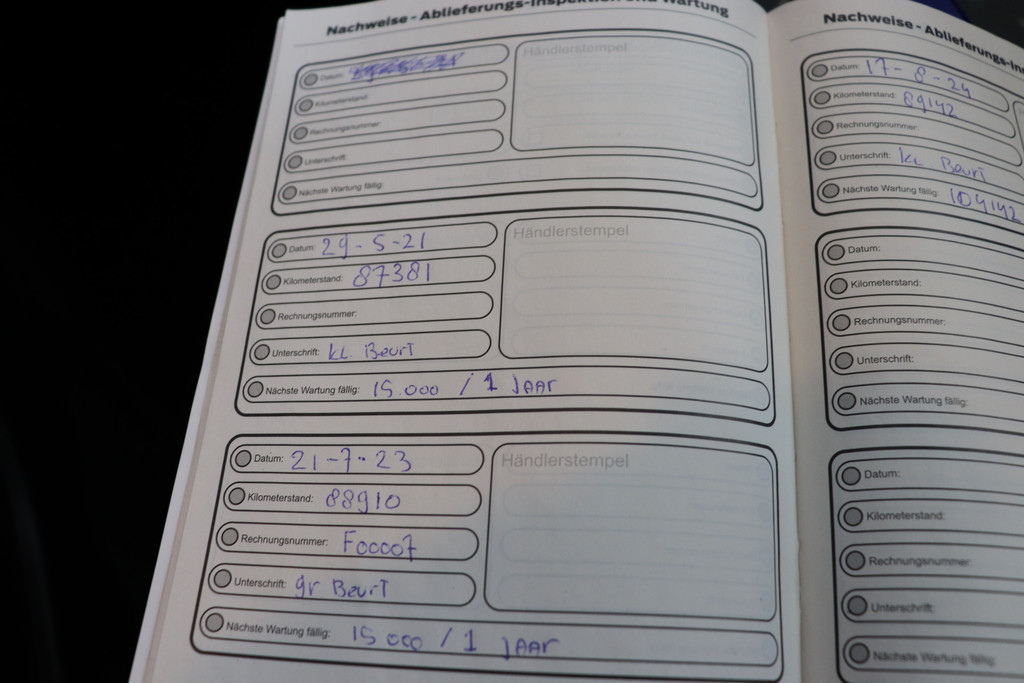 Nachweise - Ablieferungs-Inspektion und Wartung
Datum:
Kilometerstand:
Rechnungsnummer:
Unterschrift:
Nächste Wartung fällig:
Händlerstempel
Datum: 29-5-21
Kilometerstand: 87381
Rechnungsnummer:
Unterschrift: kl. Beurt
Nächste Wartung fällig: 15.000 / 1 JAAr
Händlerstempel
Datum: 21-7-23
Kilometerstand: 88910
Rechnungsnummer: F00007
Unterschrift: gr Beurt
Nächste Wartung fällig: 15000 / 1 JAAr
Händlerstempel
Nachweise - Ablieferungs-In
Datum: 17-8-24
Kilometerstand: 89142
Rechnungsnummer:
Unterschrift: kl Beurt
Nächste Wartung fällig: 104142
Datum:
Kilometerstand:
Rechnungsnummer:
Unterschrift:
Nächste Wartung fällig:
Datum:
Kilometerstand:
Rechnungsnummer:
Unterschrift:
Nächste Wartung fällig: